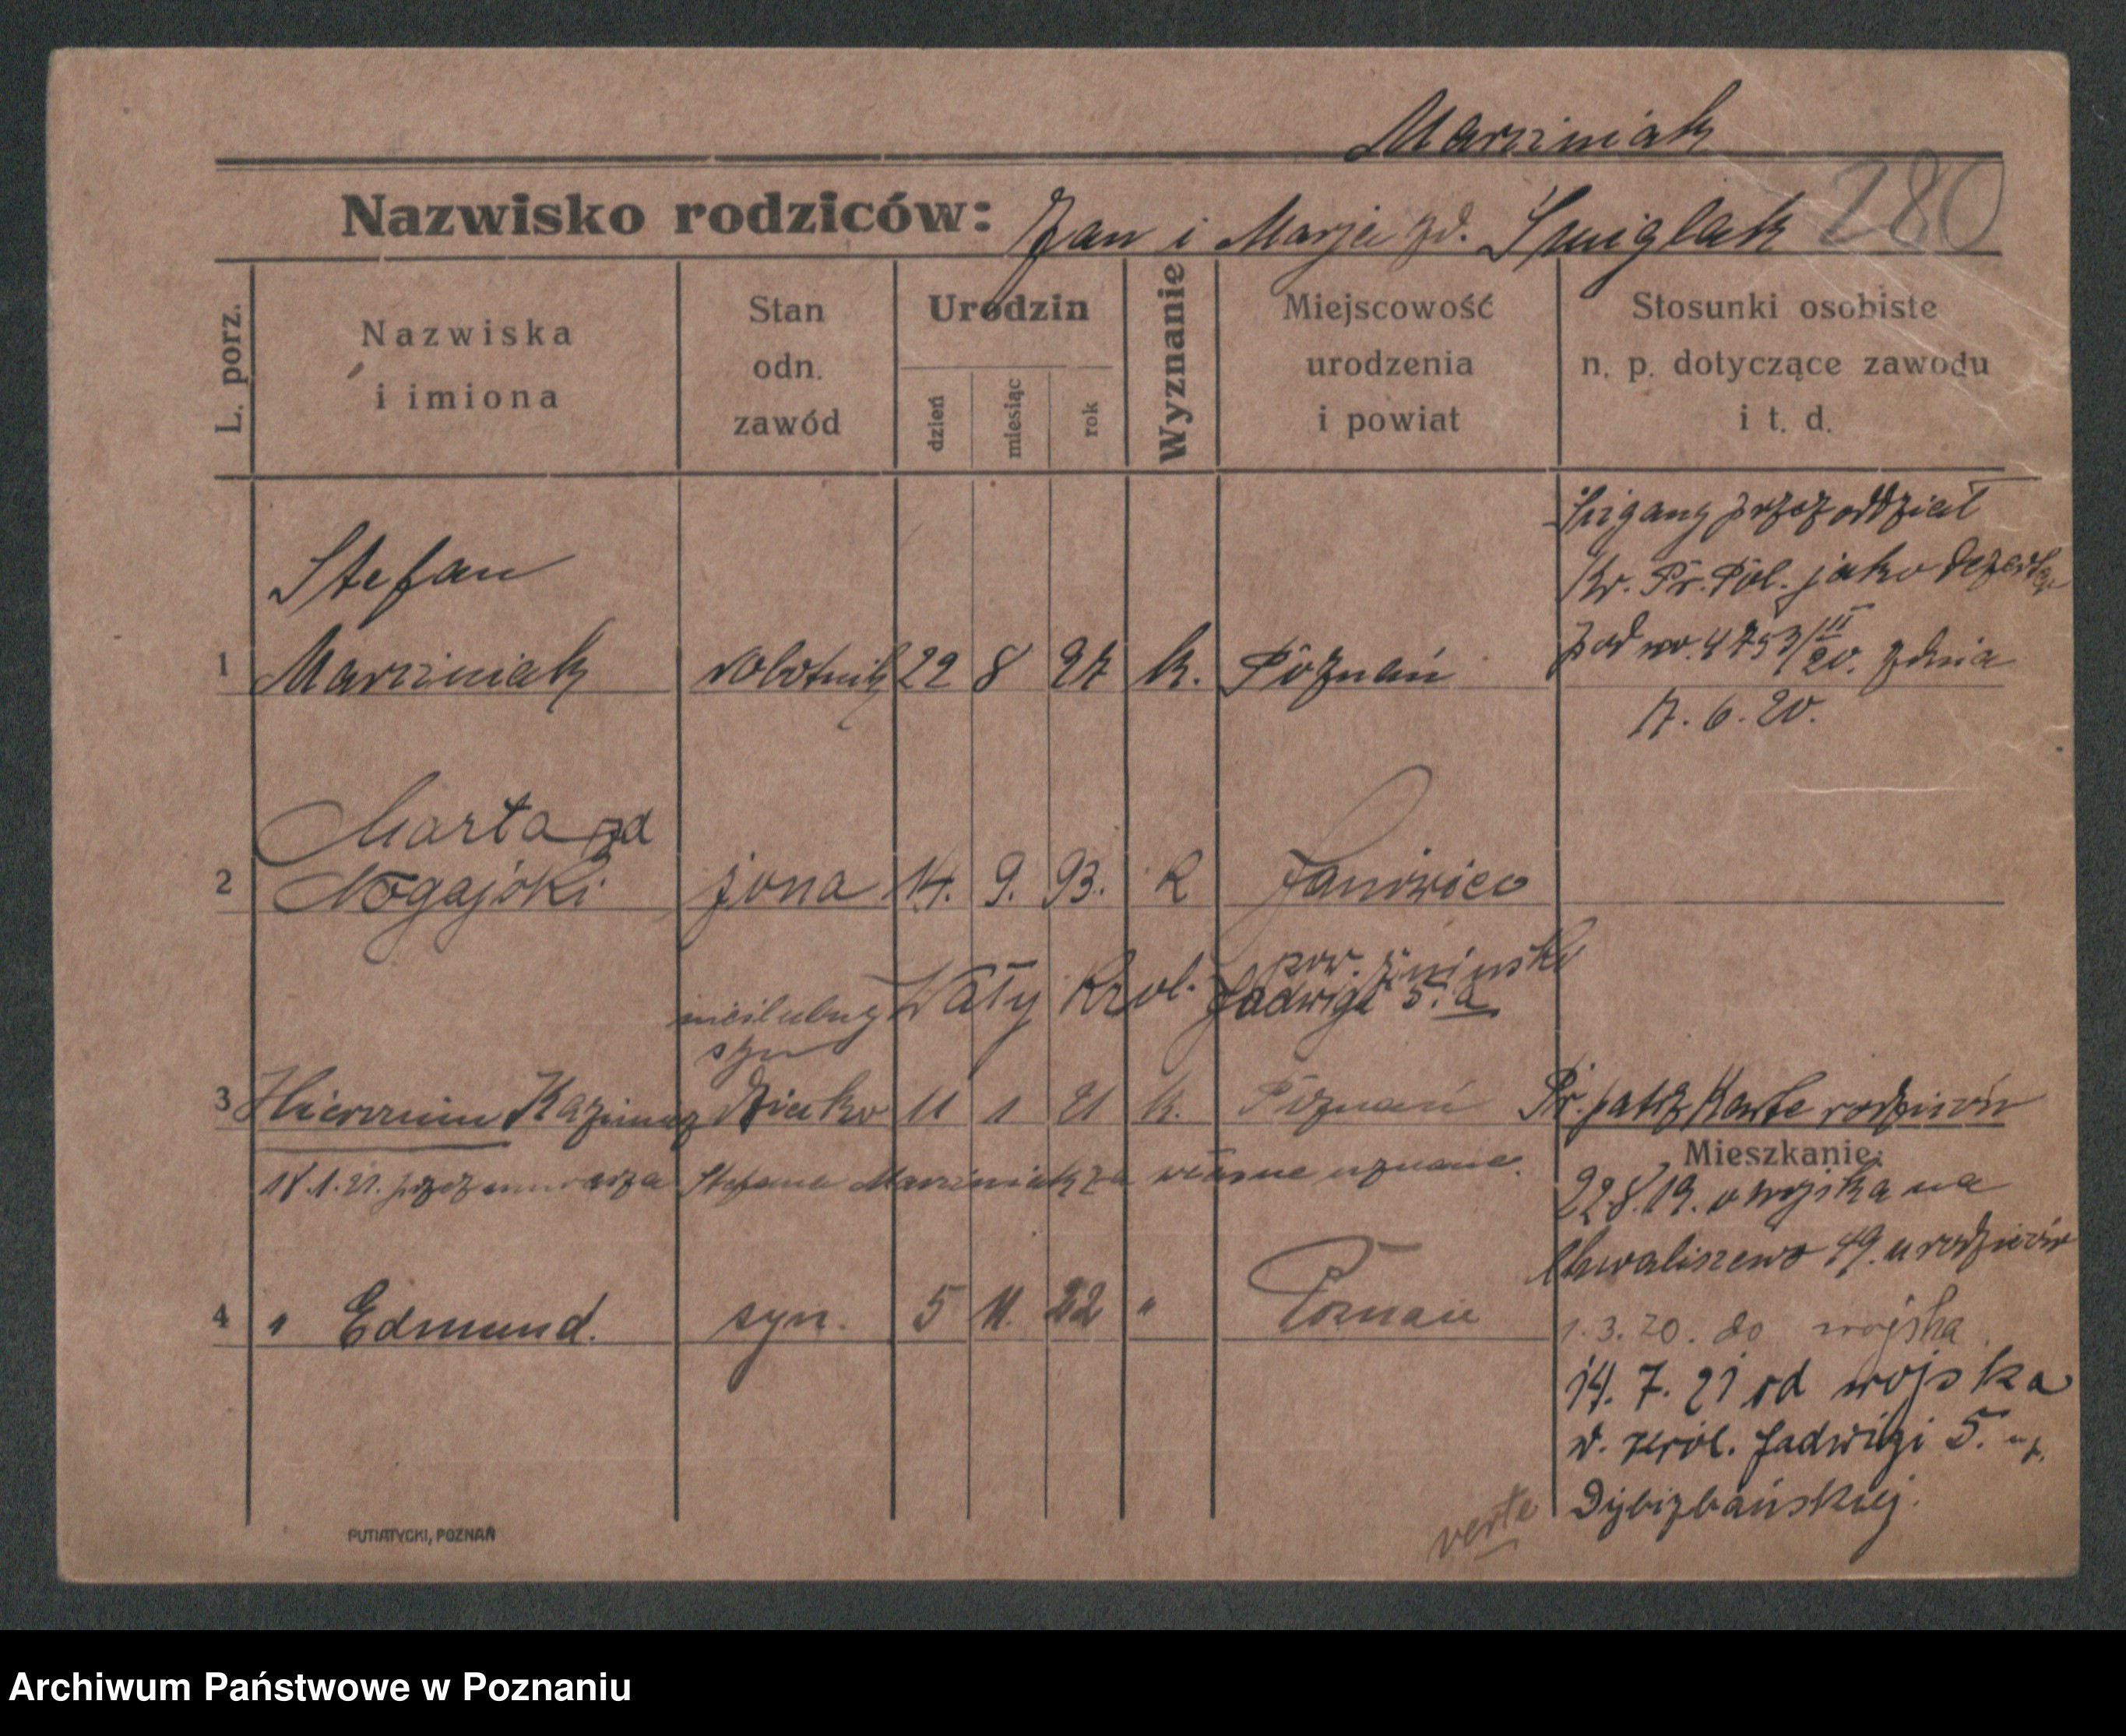 Marciniak
Nazwisko rodziców: Jan i Marja zd. Śmiglak 280
L. porz.
Nazwiska
i imiona
Stan
odn.
zawód
Urodzin
dzień
miesiąc
rok
Wyznanie
Miejscowość
urodzenia
i powiat
Stosunki osobiste
n. p. dotyczące zawodu
i t. d.
Ścigany przez oddział
Kr. Pr. Pol. jako
pod nr. 4753/III 20. z dnia
17. 6. 20.
Stefan
1 Marciniak robotnik 22 8 97 k. Poznań
Marta zd
2 Nogajski żona 14. 9. 93. k Janówiec
pow. żniński
nieślubny Wały Król. Jadwigi 5. a
syn
3 Hieronim Kazimierz dziecko 11 1 21 k. Poznań Pr. patrz Kartę rodziców
18.1.21. przez Stefana Marciniaka za własne uznane.
Mieszkanie:
22.8.19. z wojska na
Chwaliszewo 49. u rodziców
1.3.20. do wojska.
4 " Edmund. syn. 5 11. 22 " Poznań
14. 7. 21 od wojska
w. Król. Jadwigi 5.
verte
PUTIATYCKI, POZNAŃ
Archiwum Państwowe w Poznaniu